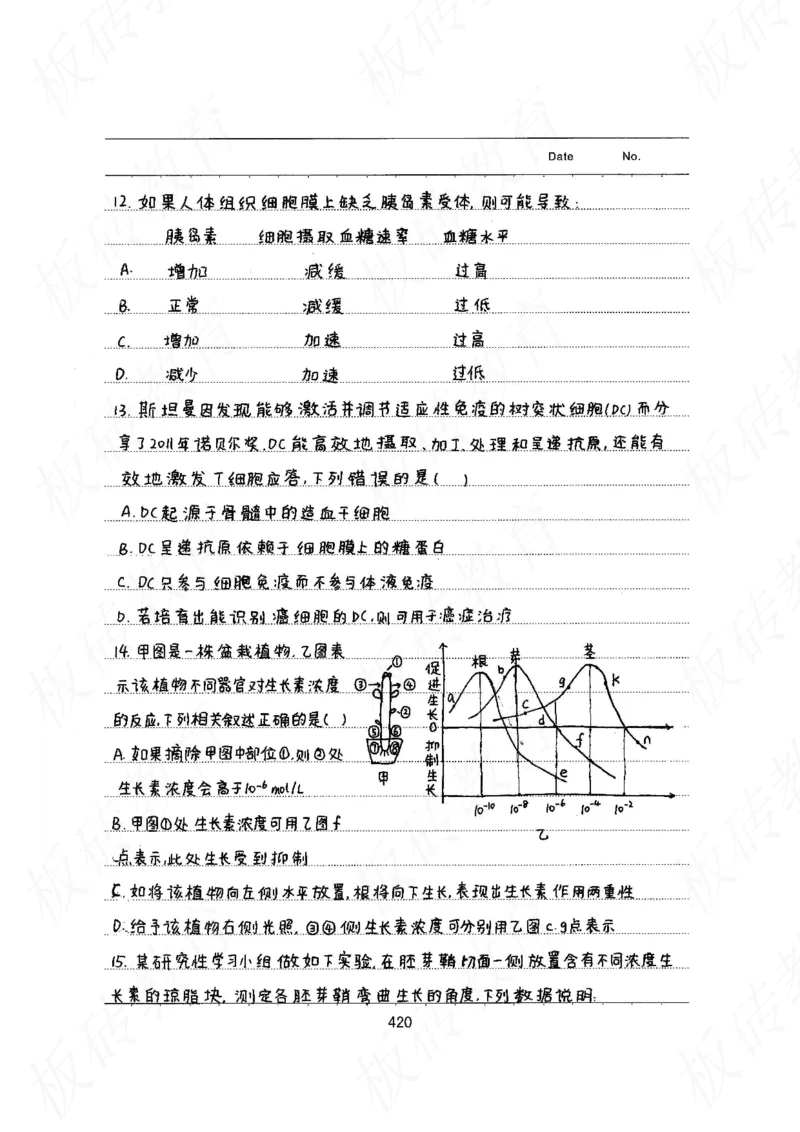 Date No.
12. 如果人体组织细胞膜上缺乏胰岛素受体, 则可能导致:
胰岛素 细胞摄取血糖速率 血糖水平
A. 增加 减缓 过高
B. 正常 减缓 过低
C. 增加 加速 过高
D. 减少 加速 过低
13. 斯坦曼因发现能够激活并调节适应性免疫的树突状细胞(DC)而分
享了2011年诺贝尔奖.DC能高效地摄取、加工.处理和呈递抗原,还能有
效地激发T细胞应答,下列错误的是( )
A.DC起源于骨髓中的造血干细胞
B.DC呈递抗原依赖于细胞膜上的糖蛋白
C. DC只参与细胞免疫而不参与体液免疫
D. 若培育出能识别癌细胞的DC,则可用于癌症治疗
14. 甲图是一株盆栽植物.乙图表
示该植物不同器官对生长素浓度
的反应,下列相关叙述正确的是( )
A. 如果摘除甲图中部位①,则②处
生长素浓度会高于10⁻⁶mol/L
B. 甲图①处生长素浓度可用乙图f
点表示,此处生长受到抑制
① ③ ④ ② ⑤ ⑥ ⑦ ⑧
甲
促进生长 0 抑制生长
根 芽 茎
a b c d e f g k n
10⁻¹⁰ 10⁻⁸ 10⁻⁶ 10⁻⁴ 10⁻²
乙
C. 如将该植物向左侧水平放置,根将向下生长,表现出生长素作用两重性
D. 给予该植物右侧光照, ③④侧生长素浓度可分别用乙图c.g点表示
15. 某研究性学习小组做如下实验,在胚芽鞘切面一侧放置含有不同浓度生
长素的琼脂块, 测定各胚芽鞘弯曲生长的角度,下列数据说明:
420
板砖教育